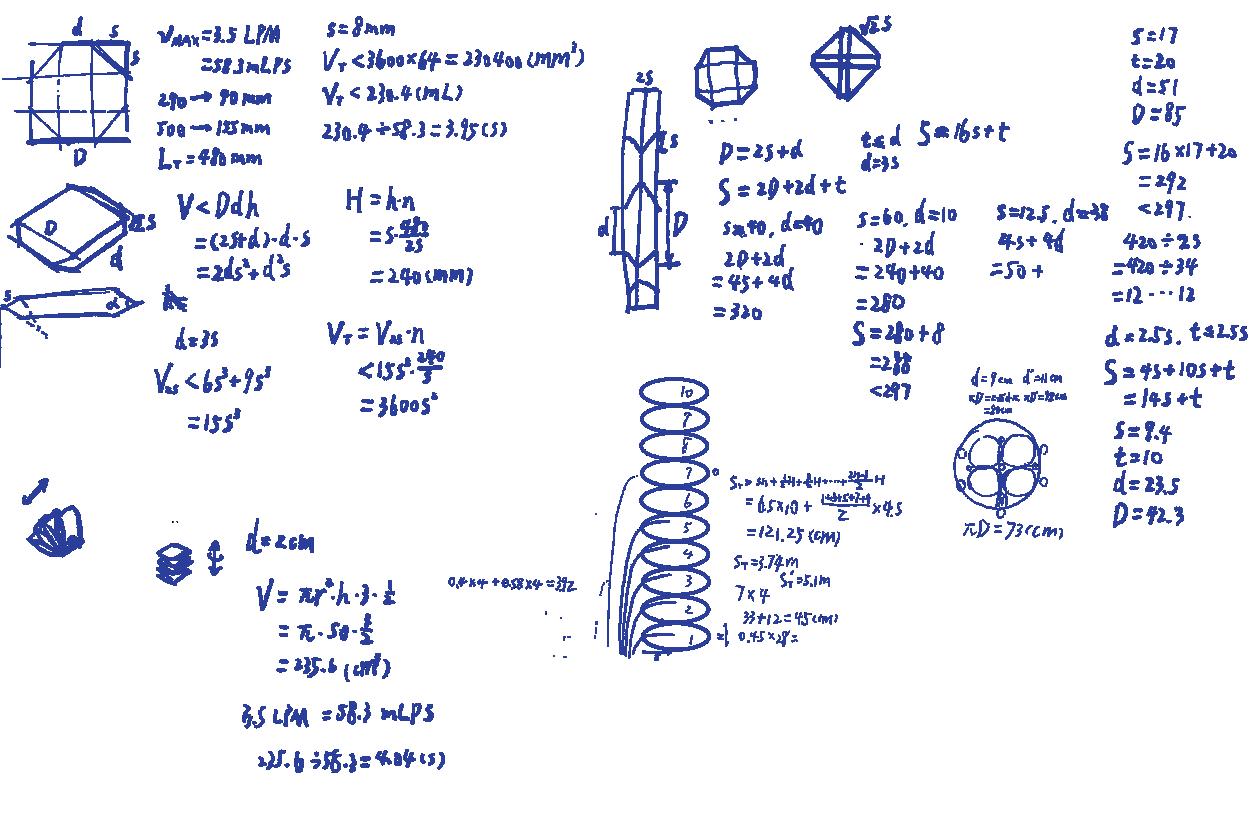 d s
s
D
V_MAX = 3.5 LPM
= 58.3 mLPS
290 → 90 mm
500 → 155 mm
L_T = 480 mm
s = 8 mm
V_T < 3600 × 64 = 230400 (mm³)
V_T < 230.4 (mL)
230.4 ÷ 58.3 = 3.95 (s)
D
d
V < Ddh
= (2s+d)·d·s
= 2ds²+d²s
H = h·n
= s·480/2s
= 240 (mm)
s
α
d = 3s
V_2s < 6s³+9s³
= 15s³
V_T = V_2s·n
< 15s³·240/s
= 3600s²
d = 2 cm
V = πr²·h·3·1/2
= π·50·3/2
= 235.6 (cm³)
3.5 LPM = 58.3 mLPS
235.6 ÷ 58.3 = 4.04 (s)
√2s
2s
s
d
D
D = 2s+d
S = 2D+2d+t
s = 40, d = 40
2D+2d
= 4s+4d
= 320
t = d
d = 3s
S = 16s+t
s = 60, d = 10
2D+2d
= 240+40
= 280
S = 280+8
= 288
< 297
s = 12.5, d = 38
4s+4d
= 50+
s = 17
t = 20
d = 51
D = 85
S = 16×17+20
= 292
< 297.
420 ÷ 2s
= 420 ÷ 34
= 12 ··· 12
d = 2.5s, t = 2.5s
S = 4s+10s+t
= 14s+t
s = 9.4
t = 10
d = 23.5
D = 42.3
10
9
8
7
6
5
4
3
2
1
= 6.5×10 + (1+3+5+7+9)/2 ×4.5
= 121.25 (cm)
S_T = 3.74m
S_T' = 5.1m
7×4
33+12 = 45 (cm)
0.45×28 =
0.4×4 + 0.58×4 = 3.92
d = 9cm d' = 11cm
πD = 73 (cm)